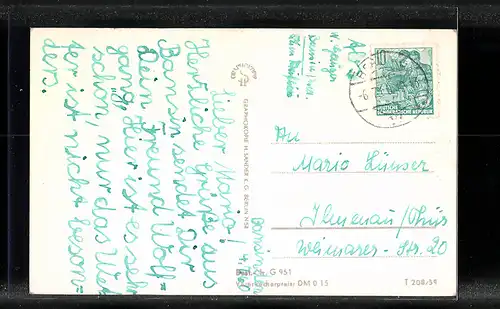 Bansin, den
Lieber Mario!
Herzliche Grüße aus
Bansin sendet Dir
Dein Freund Wolf=
gang. Hier ist es sehr
schön, nur das Wet
ter ist nicht beson=
ders.
GRAPHOKOPIE H. SANDER K. G. BERLIN N 58
Best.-Nr. G 951
Verbraucherpreis: DM 0 15
T 208/59
Abs.
W.
Bansin
10
DEUTSCHE
DEMOKRATISCHE REPUBLIK
An
Mario Hünser
Ilmenau/Thür
Weimarer-Str. 20